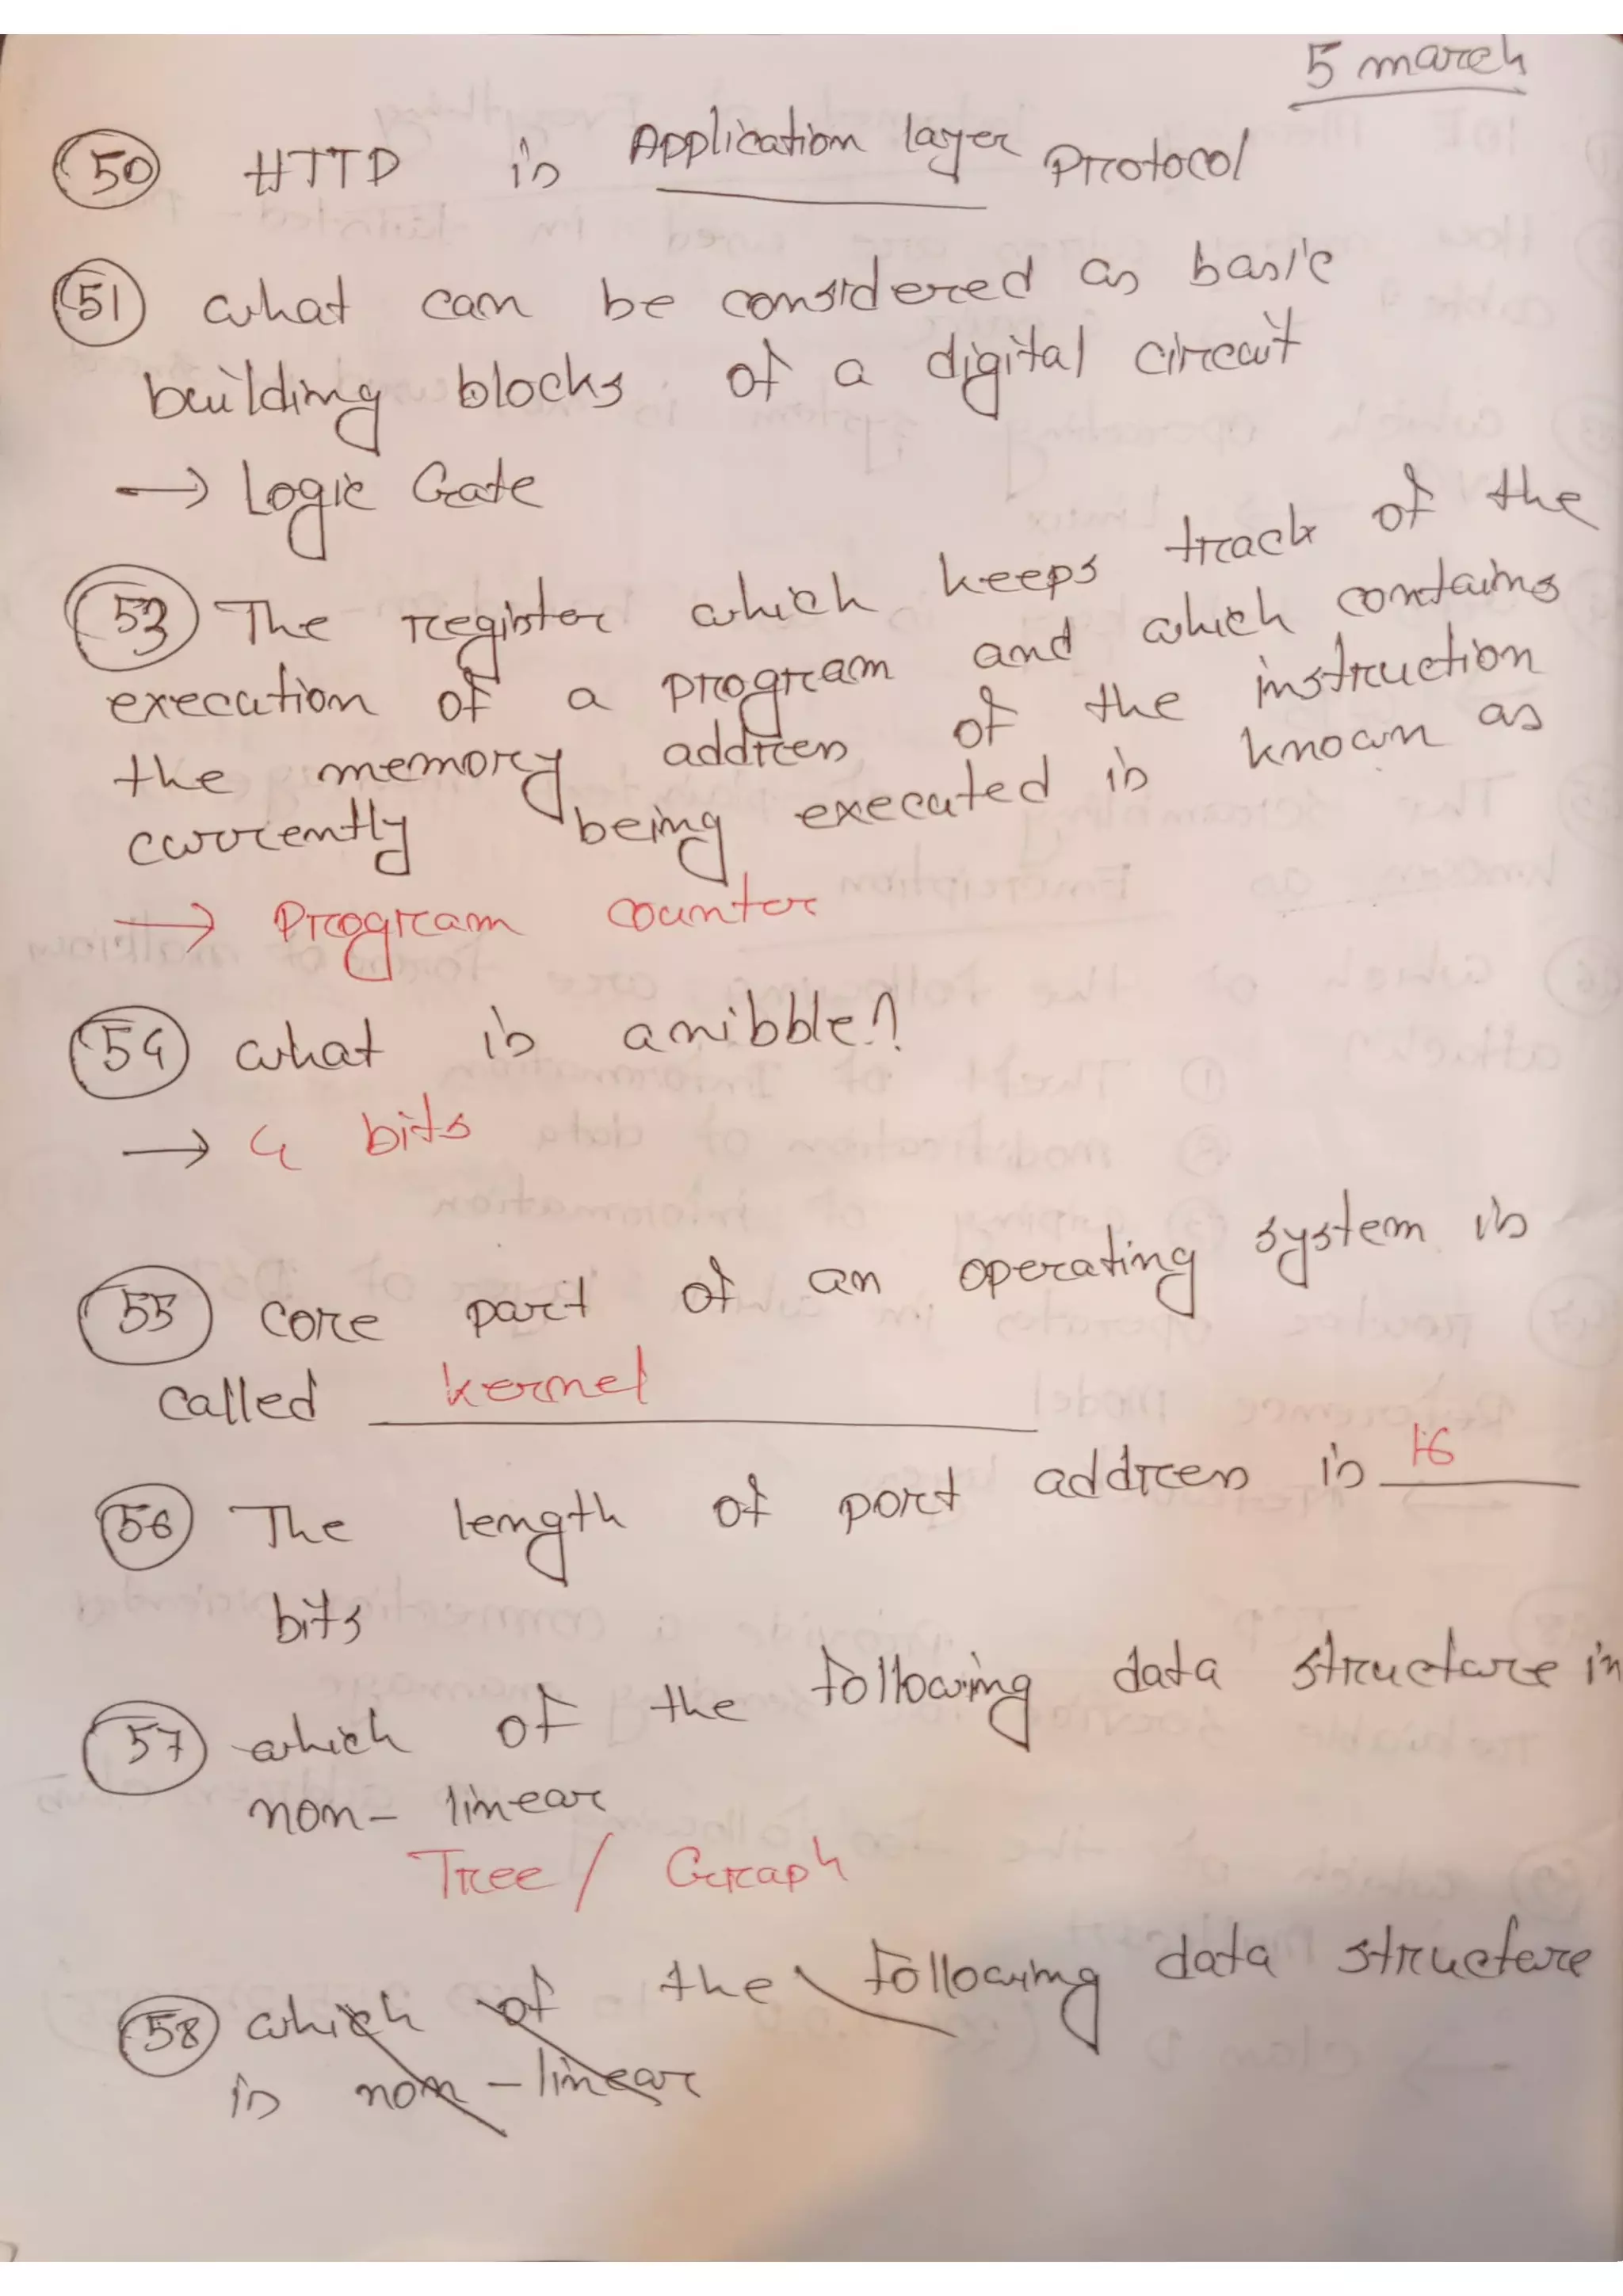 5 march
50 HTTP is Application layer Protocol
51 what can be considered as basic
building blocks of a digital circuit
→ Logic Gate
53 The register which keeps track of the
execution of a program and which contains
the memory address of the instruction
currently being executed is known as
→ Program counter
54 what is a nibble?
→ 4 bits
55 core part of an operating system is
called kernel
56 The length of port address is 16
bits
57 which of the following data structure in
non-linear
Tree / Graph
58 which of the following data structure
is non-linear